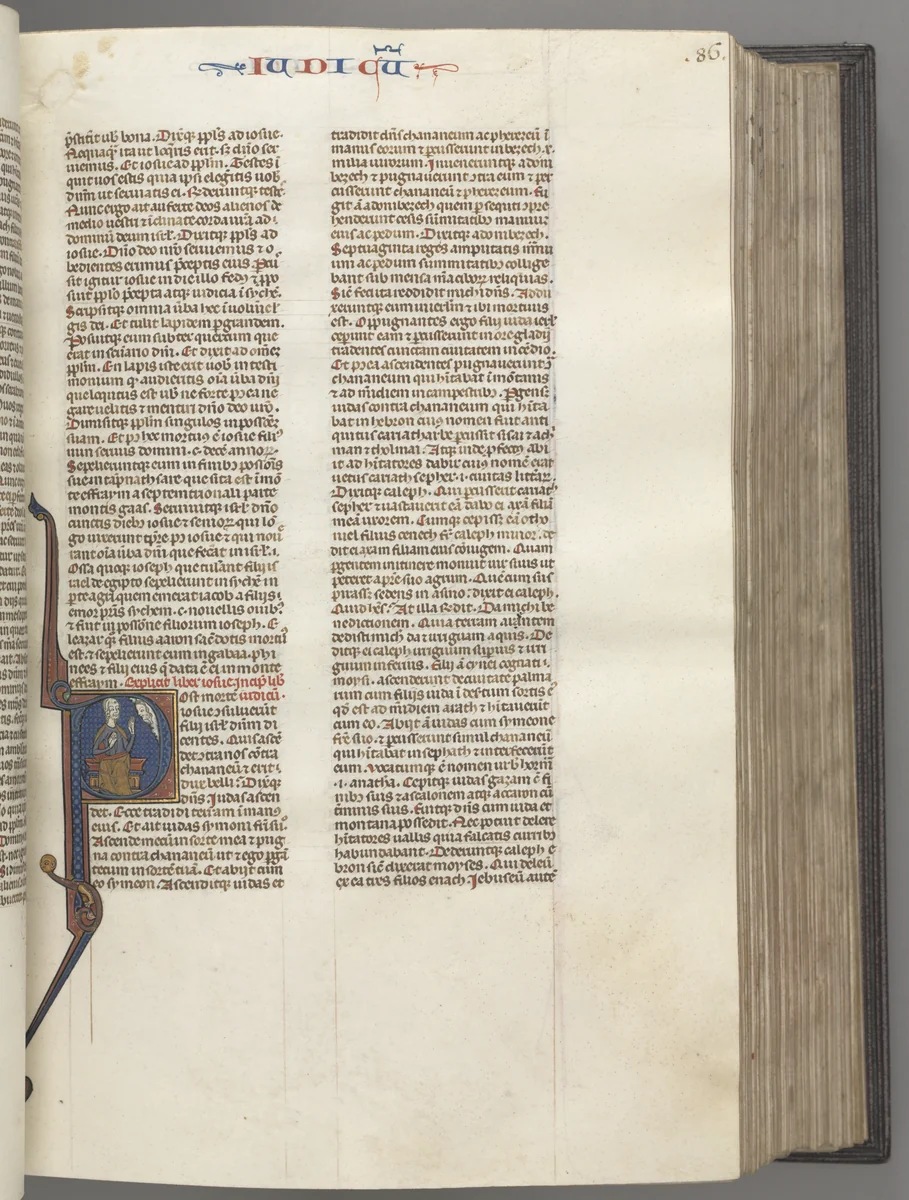 IUDICŪ
.86.
p̄stitit̄ uob̄ bona. Dix̄q; ppl̄s ad iosue.
Neq̄aq̄ ita ut loq̄ris erit. sꝫ dn̄o ser
uiemus. Et iosue ad ppl̄m. Testes ī
quit uos estis quia ip̄si elegitis uob̄
dn̄m ut seruiatis ei. Rn̄deruntq; testes.
Nunc ergo ait auferte deos alienos de
medio uestri ⁊ īclinate corda ur̄a ad
dominū deum isr̄l. Dixitq; ppl̄s ad
iosue. Dn̄o deo nr̄o seruiemus ⁊ o
bedientes erimus p̄ceptis eius. Pcus
sit igitur iosue in die illo fedꝰ ⁊ ꝓpo
suit ppl̄o p̄cepta atq; iudicia ī syche.
Scripsitq; omnia ūba hec ī uolumī le
gis dei. Et tulit lapidem p̄grandem.
Posuitq; eum subter quercum que
erat in sc̄uario dn̄i. Et dixit ad om̄eꝫ
ppl̄m. En lapis iste erit uob̄ in testi
monium qꝫ audieritis oīa ūba dn̄i
que locutus est uob̄ ne forte p̄ ea ne
gare uelitis ⁊ mentiri dn̄o deo ur̄o.
Dimisitq; ppl̄m singulos in possess̄
suam. Et p̄ hec mortuꝰ ē iosue filiꝰ
nun seruus domini .c. ⁊ decē annoꝝ.
Sepelieruntq; eum in finibꝫ possōis
sue in tāpnath sare que sita est ī mō
te effraym a septemtrionali parte
montis gaas. Seruiuitq; isr̄l dn̄o
cunctis diebꝫ iosue ⁊ senioꝝ qui lō
go uixerunt tp̄re p̄ iosue ⁊ qui noū
rant oīa ūba dn̄i que fec̄at in isr̄l.
Ossa quoq; ioseph que tulant̄ filii is
rael de egipto sepelierunt in sychē in
p̄te agri quem emerat iacob a filiis
emor pr̄is sychem .c. nouellis ouibꝫ
⁊ fuit in possōne filiorum ioseph. E
leazar qꝫ filius aaron sac̄dotis mortuꝰ
est. ⁊ sepelierunt eum in gabaa. phi
nees ⁊ filii eius q̄ data ē ei in monte
effraym. Explicit liber iosue. Incip̄ lib̄
iudicū.
Post mortē
iosue ɔsuluerūt
filii isr̄l dn̄m di
centes. Quis ascē
det ante nos cōtra
chananeū ⁊ erit
dux belli. Dixitq;
dn̄s. Iudas ascen
det. Ecce tradidi terram ī manꝰ
eius. Et ait iudas symoni fr̄i suo.
Ascende mecū in sorte mea ⁊ pug
na contra chananeū ut ⁊ ego p̄gā
tecum in sorte tua. Et abiit cum
eo symeon. Ascenditq; iudas et
tradidit dn̄s chananeum ac pherezeū ī
manus eorum ⁊ ꝑcusserunt in bezech .x.
milia uirorum. Inueneruntq; adoni
bezech ⁊ pugnauerunt ɔtra eum ⁊ ꝑer
cusserunt chananeū ⁊ pherezeum. Fu
git ā adonibezech quem ꝑsequti ɔpre
henderunt cesis sūmitatibꝫ manuum
eius ac pedum. Dixitq; adonibezech.
Septuaginta reges amputatis manu
um ac pedum summitatibꝫ collige
bant sub mensa mea ciboꝝ reliquias.
Sic̄ feci ita reddidit michi dn̄s. Addu
xeruntq; eum in ierl̄m ⁊ ibi mortuus
est. Oppugnantes ergo filii iuda ierl̄m
ceperunt eam ⁊ ꝑcusserunt in ore gladii
tradentes cunctam ciuitatem incēdio.
Et p̄ea ascendentes pugnauerunt ɔtra
chananeum qui hitabat ī mōtanis
⁊ ad m̄idiem in campestribꝫ. Pgensq;
iudas contra chananeum qui hita
bat in hebron cuiꝰ nomen fuit anti
quitus cariatharbe ꝑcussit sisai ⁊ achi
man ⁊ tholmai. Atq; inde ꝓfectꝰ abi
it ad hītatores dabir cuiꝰ nomē erat
uetus cariath sepher .i. ciuitas litt̄aꝝ.
Dixitq; caleph. Qui ꝑcusserit cariath
sepher ⁊ uastauerit eā dabo ei axam filiā
meā uxorem. Cumq; cepisset eā otho
niel filius cenech fr̄ caleph minor. de
dit ei axam filiam eius cōiugem. Quam
ꝑgentem in itinere monuit uir suus ut
peteret a pr̄e suo agrum. Que cum sus
pirasset sedens in asino. dixit ei caleph.
Quid habes. At illa rn̄dit. Da michi be
nedictionem. Quia terram arentem
dedisti michi da ⁊ irriguam aquis. De
ditq; ei caleph irriguum superius ⁊ irri
guum inferius. Filii ā cynei cognati
moysi. ascenderunt de ciuitate palma
rum cum filiis iuda ī desertum sortis eiꝰ
qd̄ est ad m̄idiem arath ⁊ hitauerūt
cum eo. Abiit ā iudas cum symeone
fr̄e suo. ⁊ ꝑcusserunt simul chananeū
qui hitabat in sephath ⁊ interfecerūt
eum. Vocatumque ē nomen urbis horma
.i. anathema. Cepitq; iudas gazam cū fi
nibꝫ suis ⁊ ascalonem atq; accaron cū
t̄minis suis. Fuitq; dn̄s cum iuda et
montana possedit. Nec potuit delere
hītatores uallis quia falcatis curribꝫ
habundabant. Dederuntq; caleph e
bron sic̄ dixerat moyses. Qui deleuit
ex ea tres filios enach. Iebuseū autē